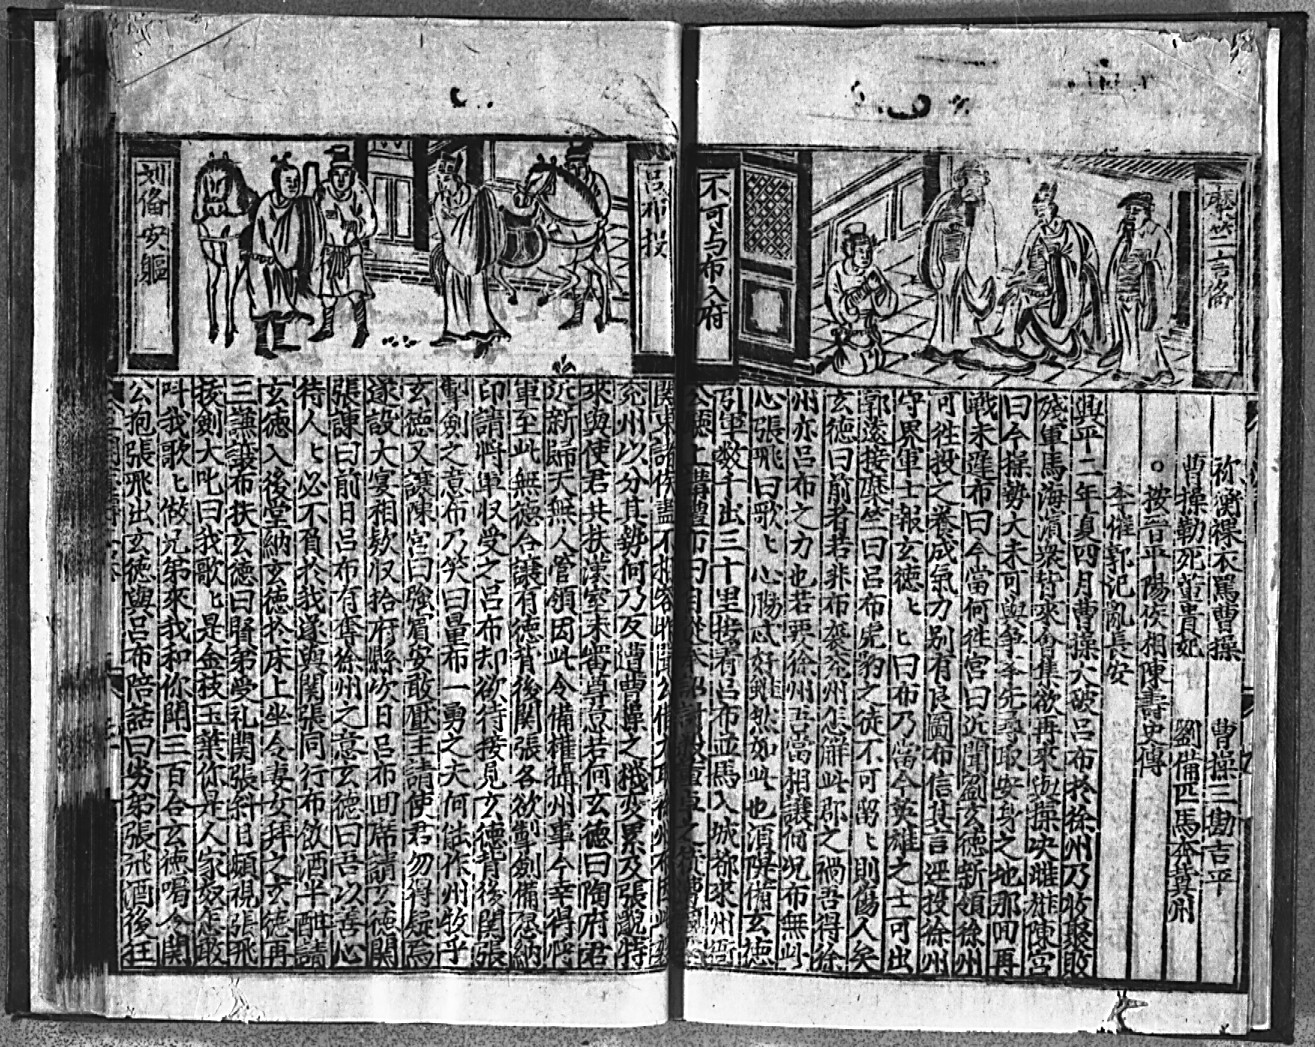 糜竺言洛
不可与布入府
祢衡裸衣罵曹操　曹操三勘吉平
曹操勒死董貴妃　劉備匹馬奔冀州
○按晉平陽侯相陳壽史傳
李傕郭汜亂長安
興平二年夏四月曹操大破呂布於徐州乃收聚敗
殘軍馬海濱衆皆來會集欲再來與操决雌雄陳宮
曰今操勢大未可與爭先尋取安身之地那囬再
戰未遲布曰今當何徃宮曰近聞劉玄德新領徐州
可徃投之養成氣力別有良圖布信其言逕投徐州
守界軍士報玄德〻〻曰布乃當今英雄之士可出
郭遠接糜竺曰呂布虎豹之徒不可留〻則傷人矣
玄德曰前者若非布襲兖州怎解此郡之禍吾得徐
州亦呂布之力也若要徐州吾當相讓何况布無此
心張飛曰哥〻心腸忒好雖然如此也須準備玄德
引軍數千出三十里接着呂布並馬入城
關東諸侯盡不相容昨聞公
兖州以分其勢何乃反遭曹操之機灾累及張邈特
來與使君共扶漢室未審尊意若何玄德曰陶府君
近新歸天無人管領因此令備權攝州事今幸得將
軍至此無德合讓有德背後關張各欲掣劍備忍納
印請將軍収受之呂布却欲待接見玄德背後関張
掣劍之意布乃笑曰量布一勇之夫何能作州牧乎
玄德又讓陳宮曰強賓安敢壓主請使君勿得疑焉
遂設大宴相欵収拾府縣次日呂布囬席請玄德関
張諫曰前日呂布有奪徐州之意玄德曰吾以善心
待人〻必不負於我遂與関張同行布飲酒半酣請
玄德入後堂納玄德於床上坐令妻女拜之玄德再
三謙讓布扶玄德曰賢弟受礼関張斜目頗視張飛
拔劍大叱曰我歌〻是金枝玉葉你是人家奴怎敢
呌我歌〻做兄弟來我和你鬪三百合玄德喝令関
公抱張飛出玄德與呂布陪話曰劣弟張飛酒後狂
呂布投
刘俻安軀